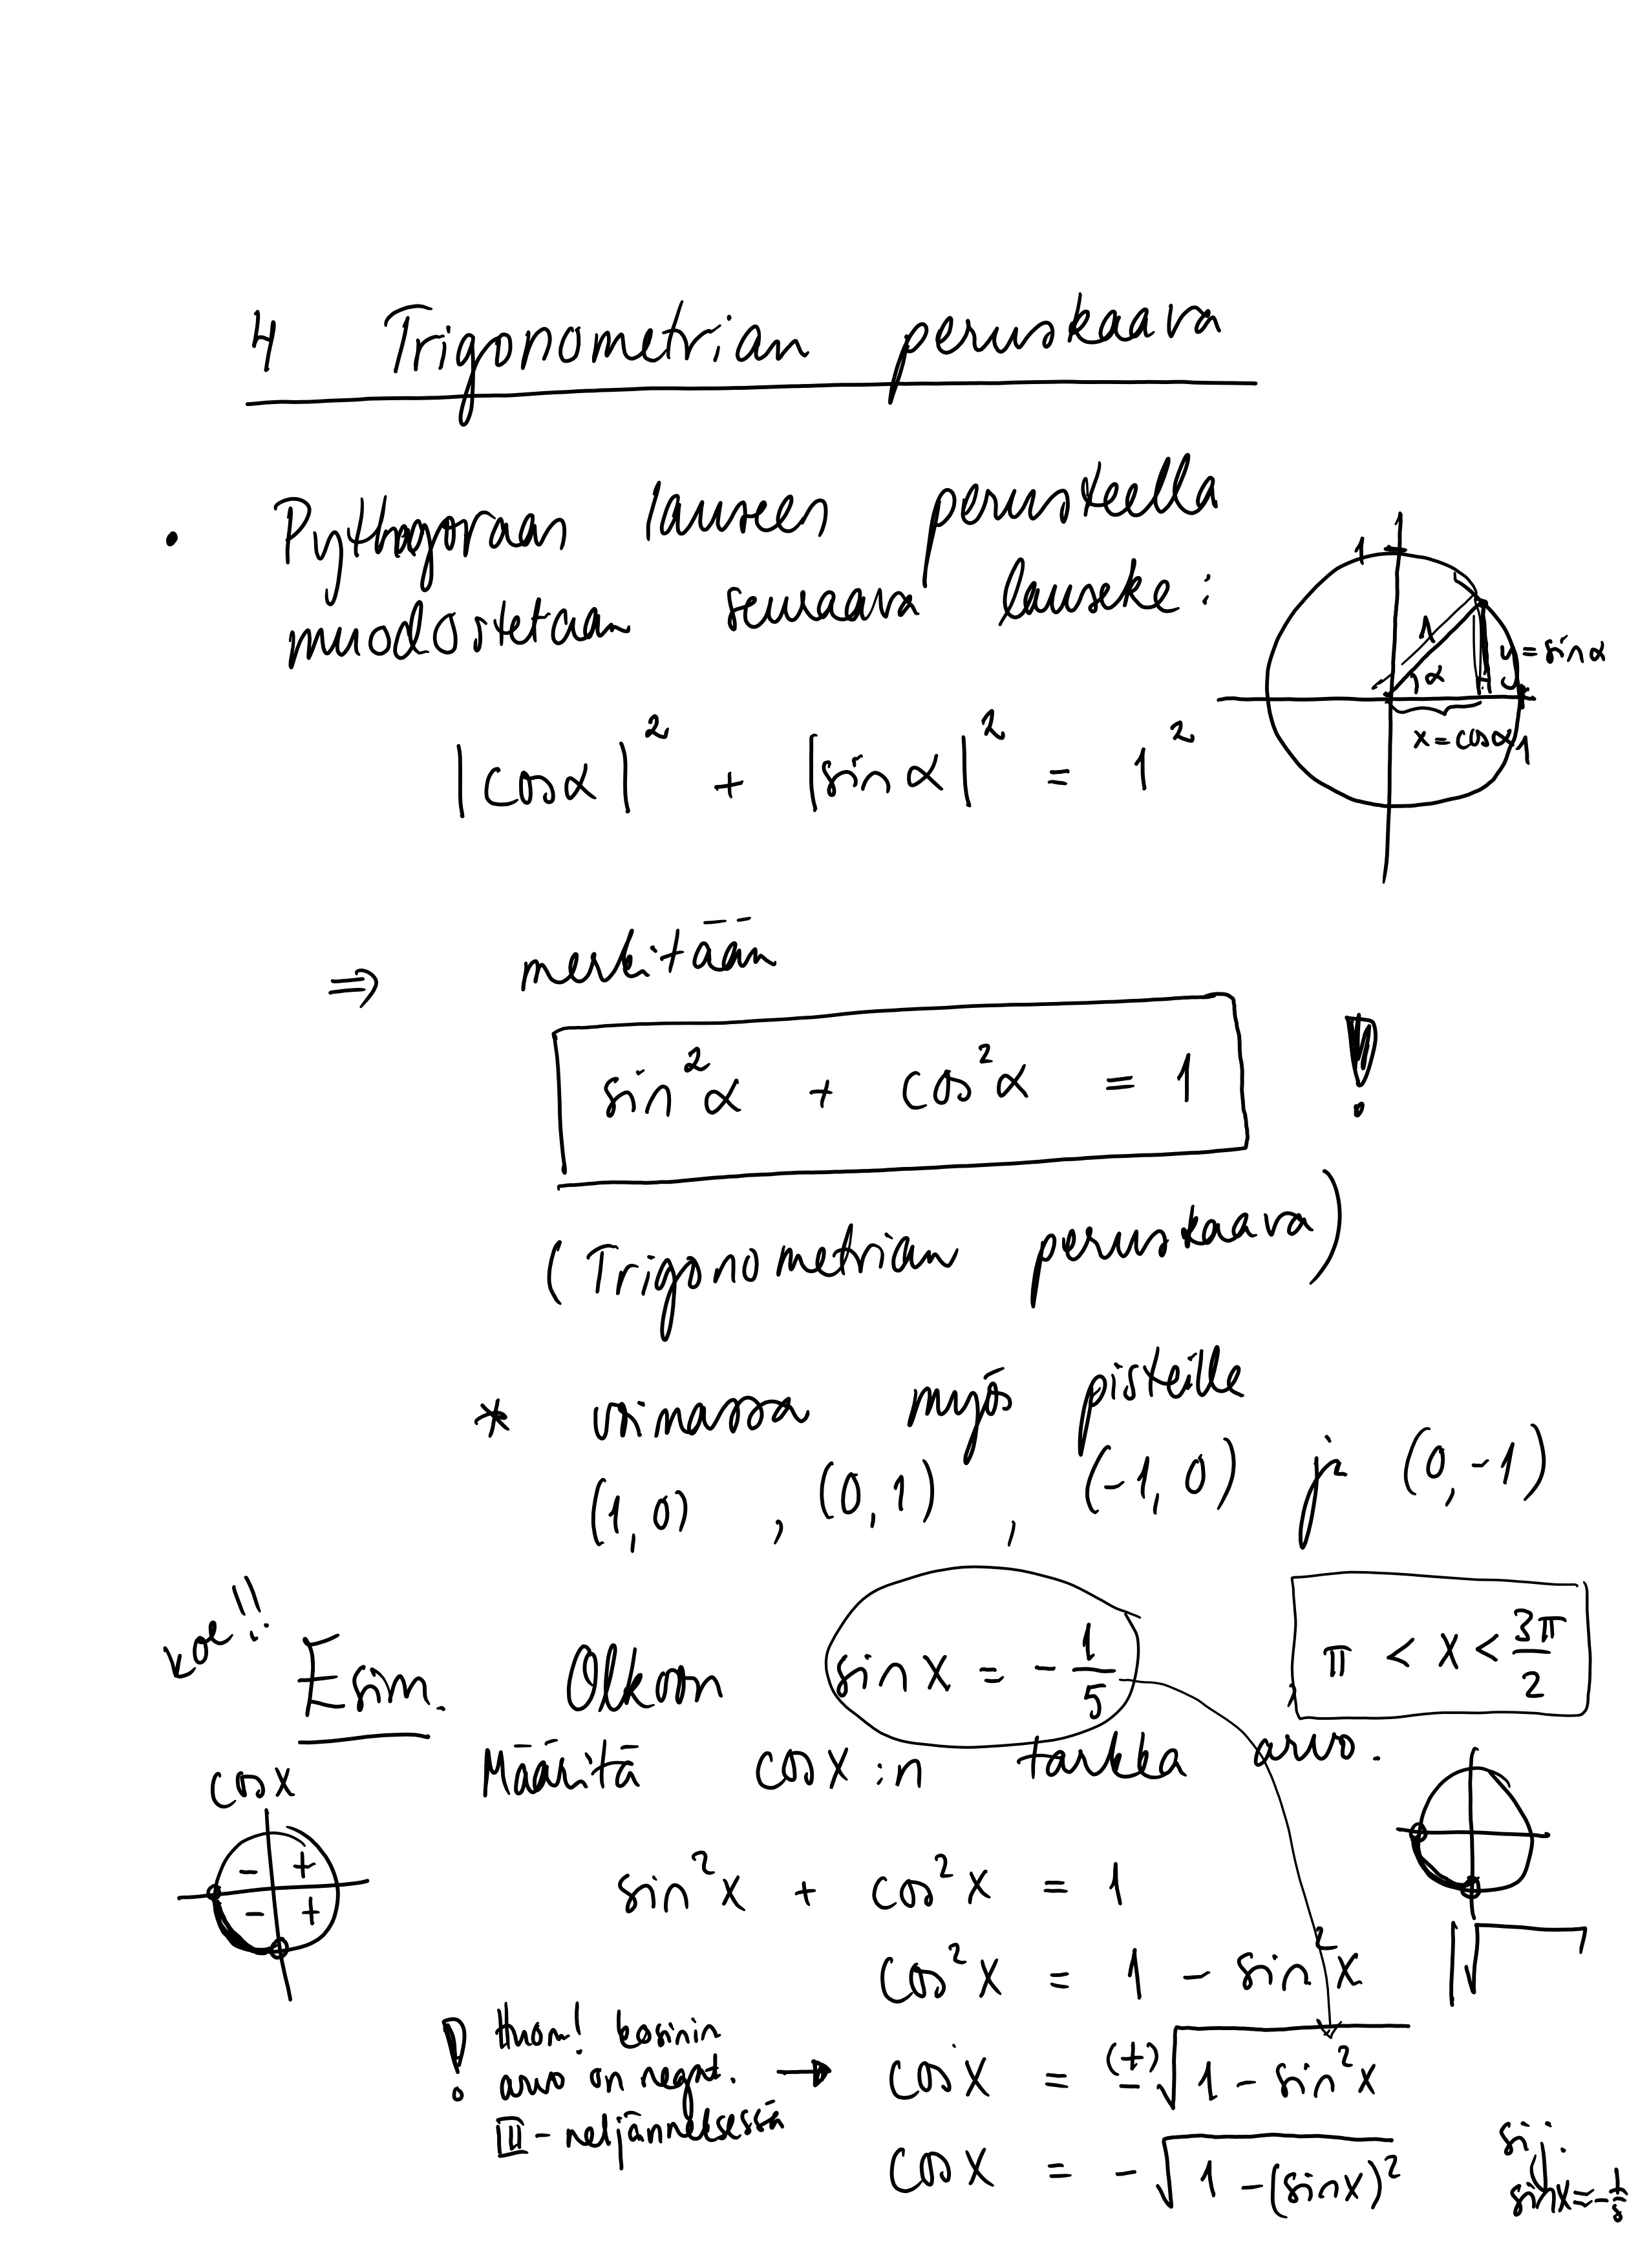 4 Trigonometrian peruskaava
• Pythagoraan lauseen perusteella
muodostetaan seuraava lauseke:
1
1
α
y = sin α
x = cos α
1
|cos α|² + |sin α|² = 1²
⇒ merkitään
sin²α + cos²α = 1 !
(Trigonometrian peruskaava)
* voimassa myös pisteille
(1,0) , (0,1) , (-1,0) ja (0,-1)
koe!!
Esim. Olkoon sin x = -1/5 , π < x < 3π/2
Määritä cos x:n tarkka arvo.
cos x
- +
- +
sin²x + cos²x = 1
cos²x = 1 - sin²x
|√
! Huom! kosinin
arvo on negat. → cos x = (±)√(1 - sin²x)
III-neljänneksessä
cos x = -√(1 - (sin x)²)
sij.
sin x = -1/5